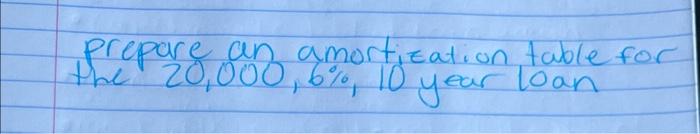 prepare an amortization table for
the 20,000, 6%, 10 year loan